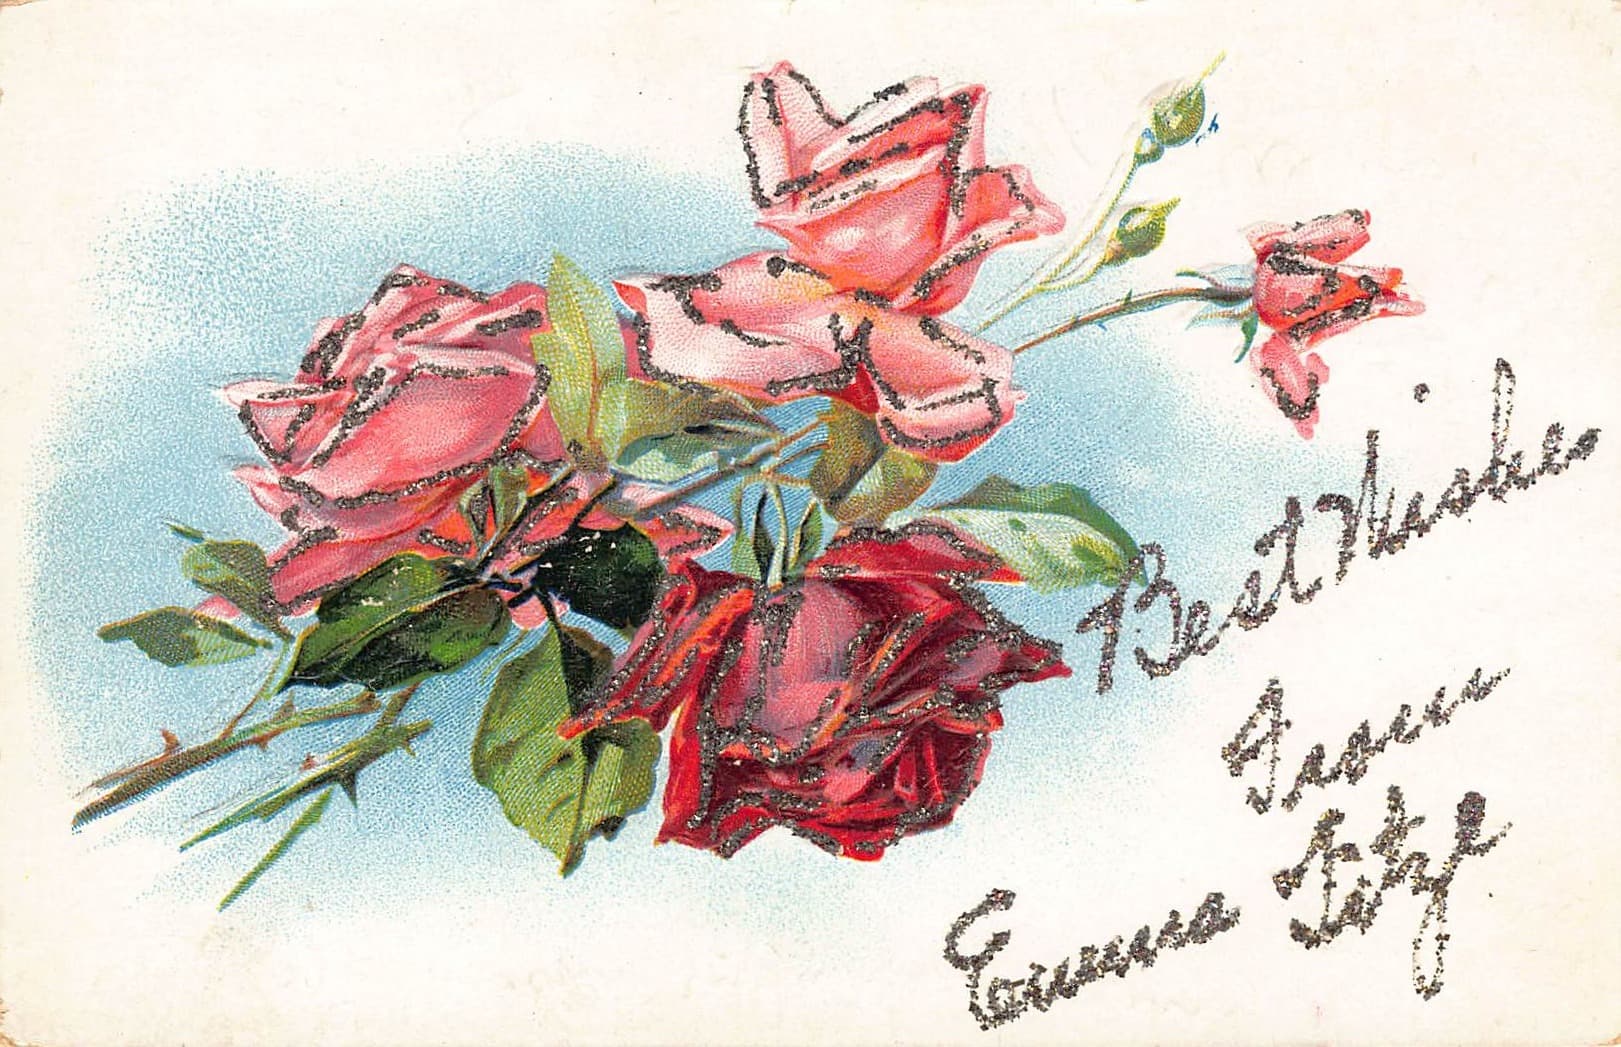 Best Wishes
From
Emma Fitz